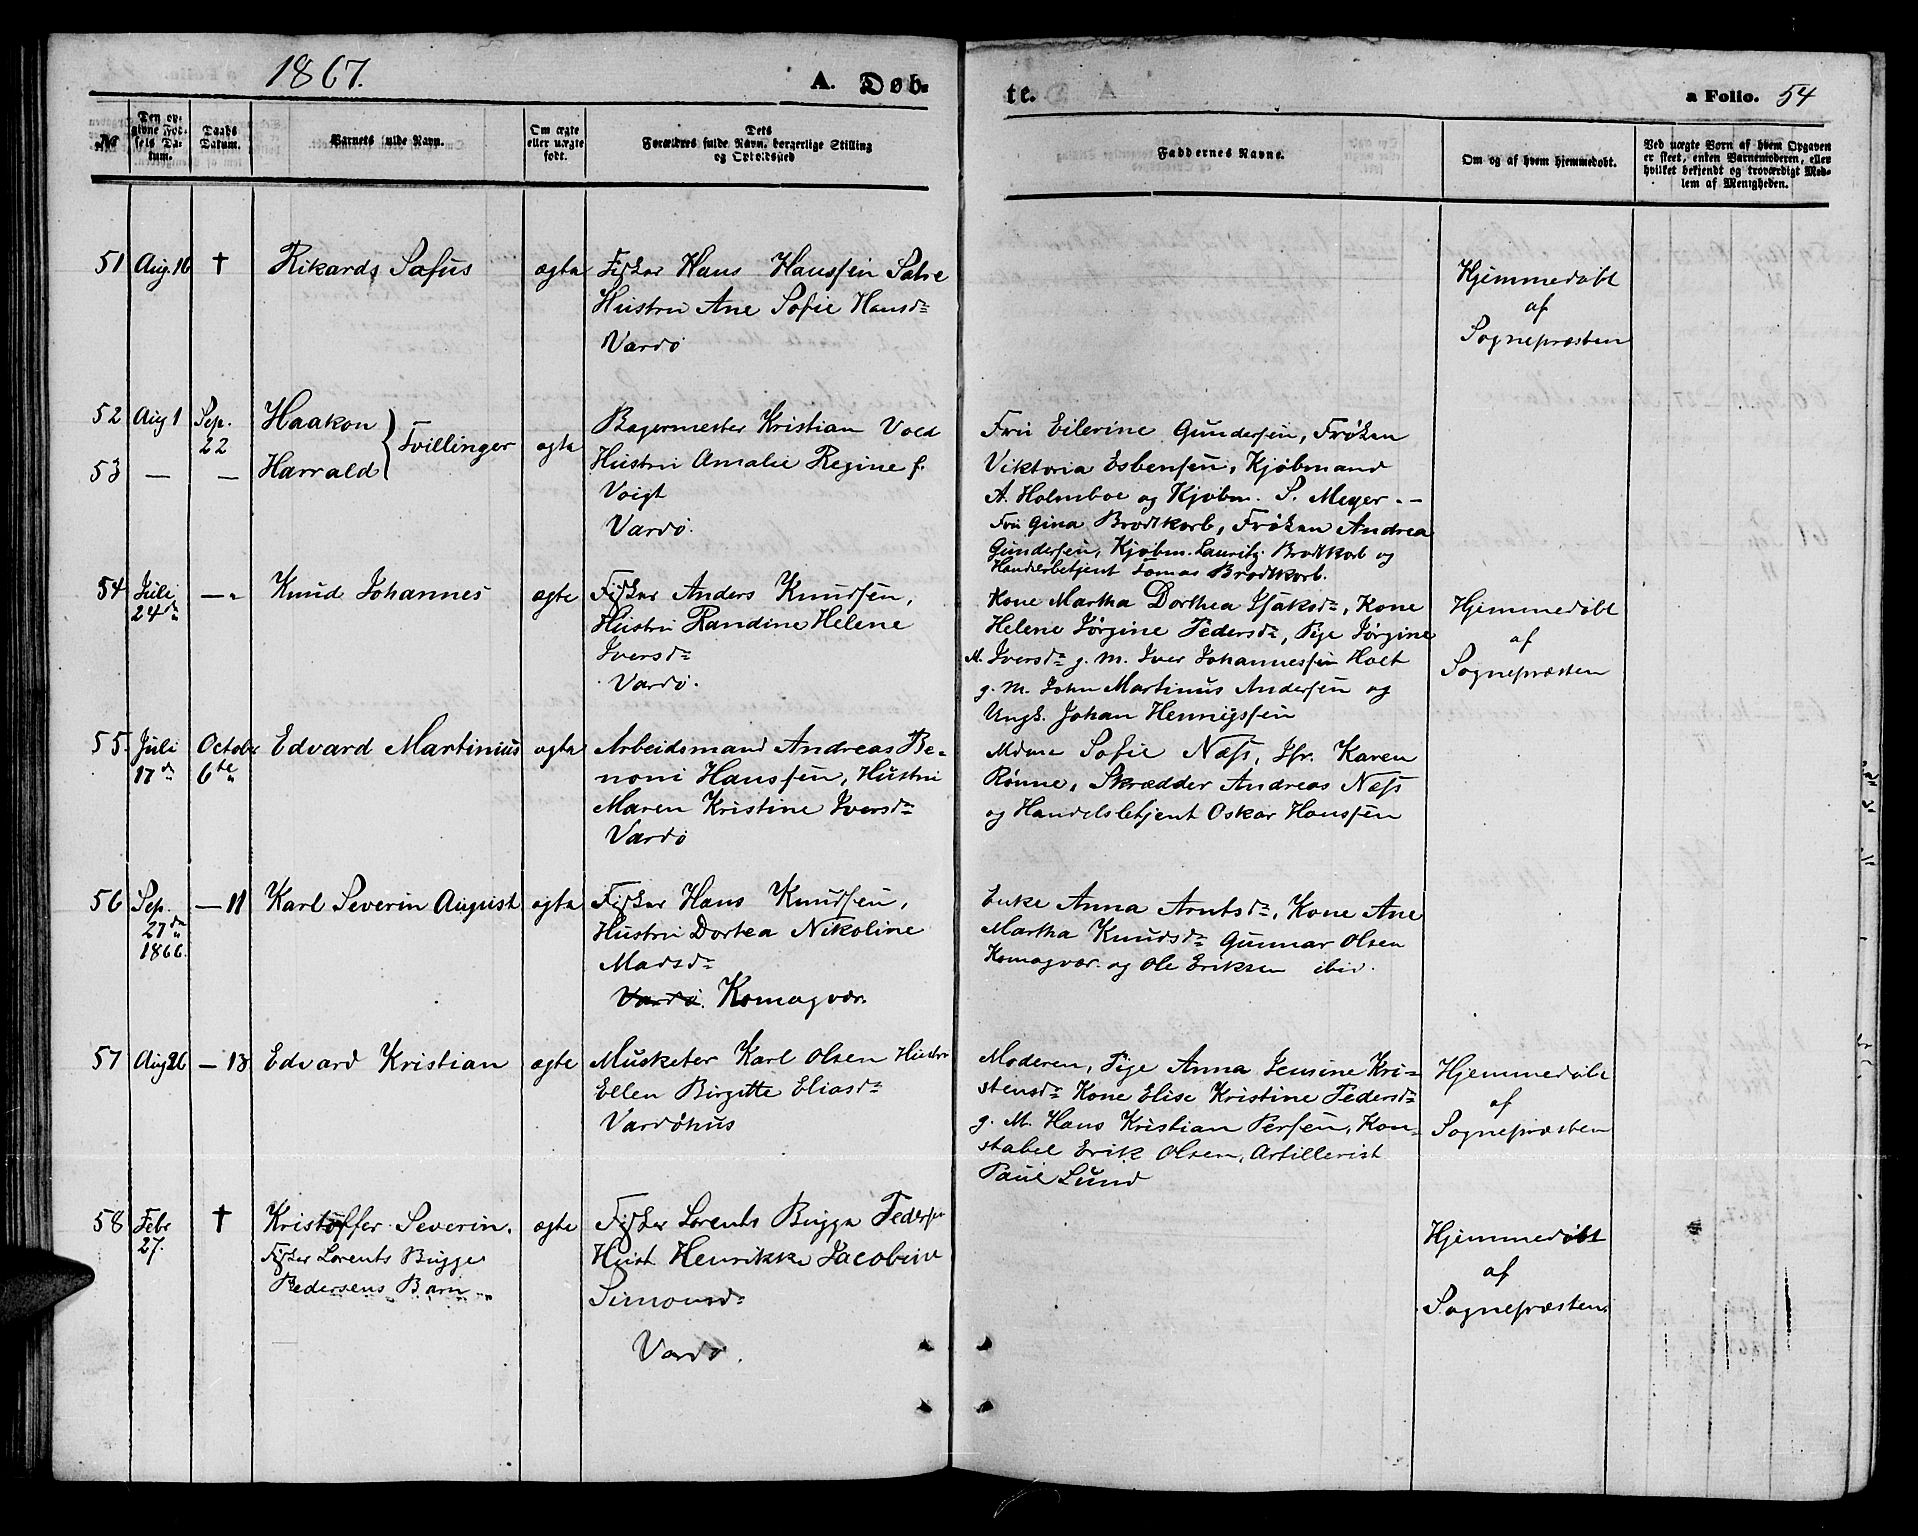 1867.
A. Døb-
te.
a Folio. 54
No
Den op-
givne Fød-
sels Da-
tum.
Daabs
Datum.
Barnets fulde Navn.
Om ægte
eller uægte
født.
Dets
Forældres fulde Navn, borgerlige Stilling
og Opholdssted
Faddernes Navne.
Om og af hvem hjemmedøbt.
Ved uægte Børn af hvem Opgaven
er skeet, enten Barnemoderen, eller
hvilket bekjendt og troværdigt Med-
lem af Menigheden.
51 Aug. 16 † Rikards Safus ægte
Fisker Hans Hanssen Satre
Hustru Ane Sofie Hansdr
Vardø
Hjemmedøbt
af
Sognepræsten
52 Aug 1 Sep. 22 Haakon
53 — — Harrald
Tvillinger ægte
Bagermester Kristian Vold
Hustru Amalie Regine f.
Voigt
Vardø.
Fru Eilerine Gundersen, Frøken
Viktoria Esbensen, Kjøbmand
A. Holmboe og Kjøbm. P. Meyer. —
Fru Gina Brodtkorb, Frøken Andrea
Gundersen, Kjøbm. Lauritz Brodtkorb og
Handelsbetjent Tomas Brodtkorb.
54 Juli 24de —„ Knud Johannes ægte
Fisker Anders Knudsen,
Hustru Randine Helene
Iversdr
Vardø.
Kone Martha Dorthea Isaksdr, Kone
Helene Jørgine Pedersdr, Pige Jørgine
M. Iversdr g. M. Iver Johannessen Holt
g. M. John Martinus Andersen og
Ungk. Johan Hennigssen
Hjemmedøbt
af
Sognepræsten
55. Juli 17de October 6te Edvard Martinius ægte
Arbeidsmand Andreas Be-
noni Hanssen, Hustru
Maren Kristine Iversdr
Vardø
Mdme Sofie Næss, Jfr. Karen
Rønne, Skrædder Andreas Næss
og Handelsbetjent Oskar Hanssen
56 Sep. 27de 1866. — 11 Karl Severin August ægte
Fisker Hans Knudsen,
Hustru Dortea Nikoline
Madsdr
Vardø. Komagvær.
Enke Anna Arntsdr, Kone Ane
Martha Knudsdr Gunnar Olsen
Komagvær. og Ole Eriksen ibid.
57 Aug 26 — 13 Edvard Kristian ægte
Musketer Karl Olsen Hustru
Ellen Birgitte Eliasdr
Vardøhus
Moderen, Pige Anna Jensine Kri-
stensdr Kone Elise Kristine Pedersdr
g. M. Hans Kristian Persen, Kon-
stabel Erik Olsen, Artillerist
Paul Lund
Hjemmedøbt
af
Sognepræsten
58 Febr 27. † Kristoffer Severin. ægte
Fisker Lorents Bugge
Pedersens Barn
Fisker Lorents Bugge Pedersen
Hust Henrikke Jacobine
Simonsdr
Vardø.
Hjemmedøbt
af
Sognepræsten.